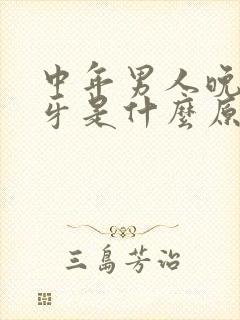 中年男人晚
牙是什麼原
三島芳治